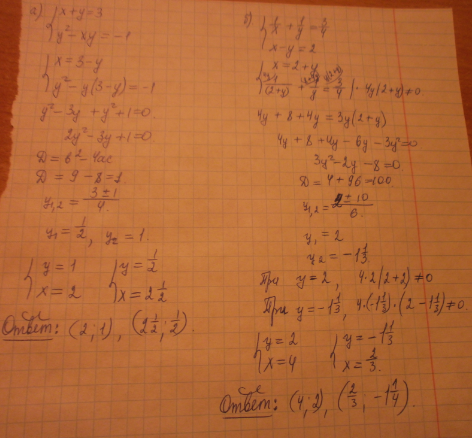 а) { x + y = 3
y² − xy = −1
{ x = 3 − y
y² − y(3 − y) = −1
y² − 3y + y² + 1 = 0
2y² − 3y + 1 = 0
D = b² − 4ac
D = 9 − 8 = 1
y₁,₂ = (3 ± 1)/4
y₁ = 1/2, y₂ = 1.
{ y = 1 { y = 1/2
x = 2 x = 2 1/2
Ответ: (2; 1), (2 1/2; 1/2).
{ 1/x + 1/y = 3/4
x − y = 2
{ x = 2 + y
/(2+y) + /y = 3/4 | · 4y(2+y) ≠ 0
4y + 8 + 4y = 3y(2+y)
4y + 8 + 4y − 6y − 3y² = 0
3y² − 2y − 8 = 0
D = 4 + 96 = 100
y₁,₂ = (2 ± 10)/6
y₁ = 2
y₂ = −1 1/3
При y = 2, 4·2(2+2) ≠ 0
При y = −1 1/3, 4·(−1 1/3)·(2 − 1 1/3) ≠ 0.
{ y = 2 { y = −1 1/3
x = 4 x = 2/3.
Ответ: (4; 2), (2/3; −1 1/4).